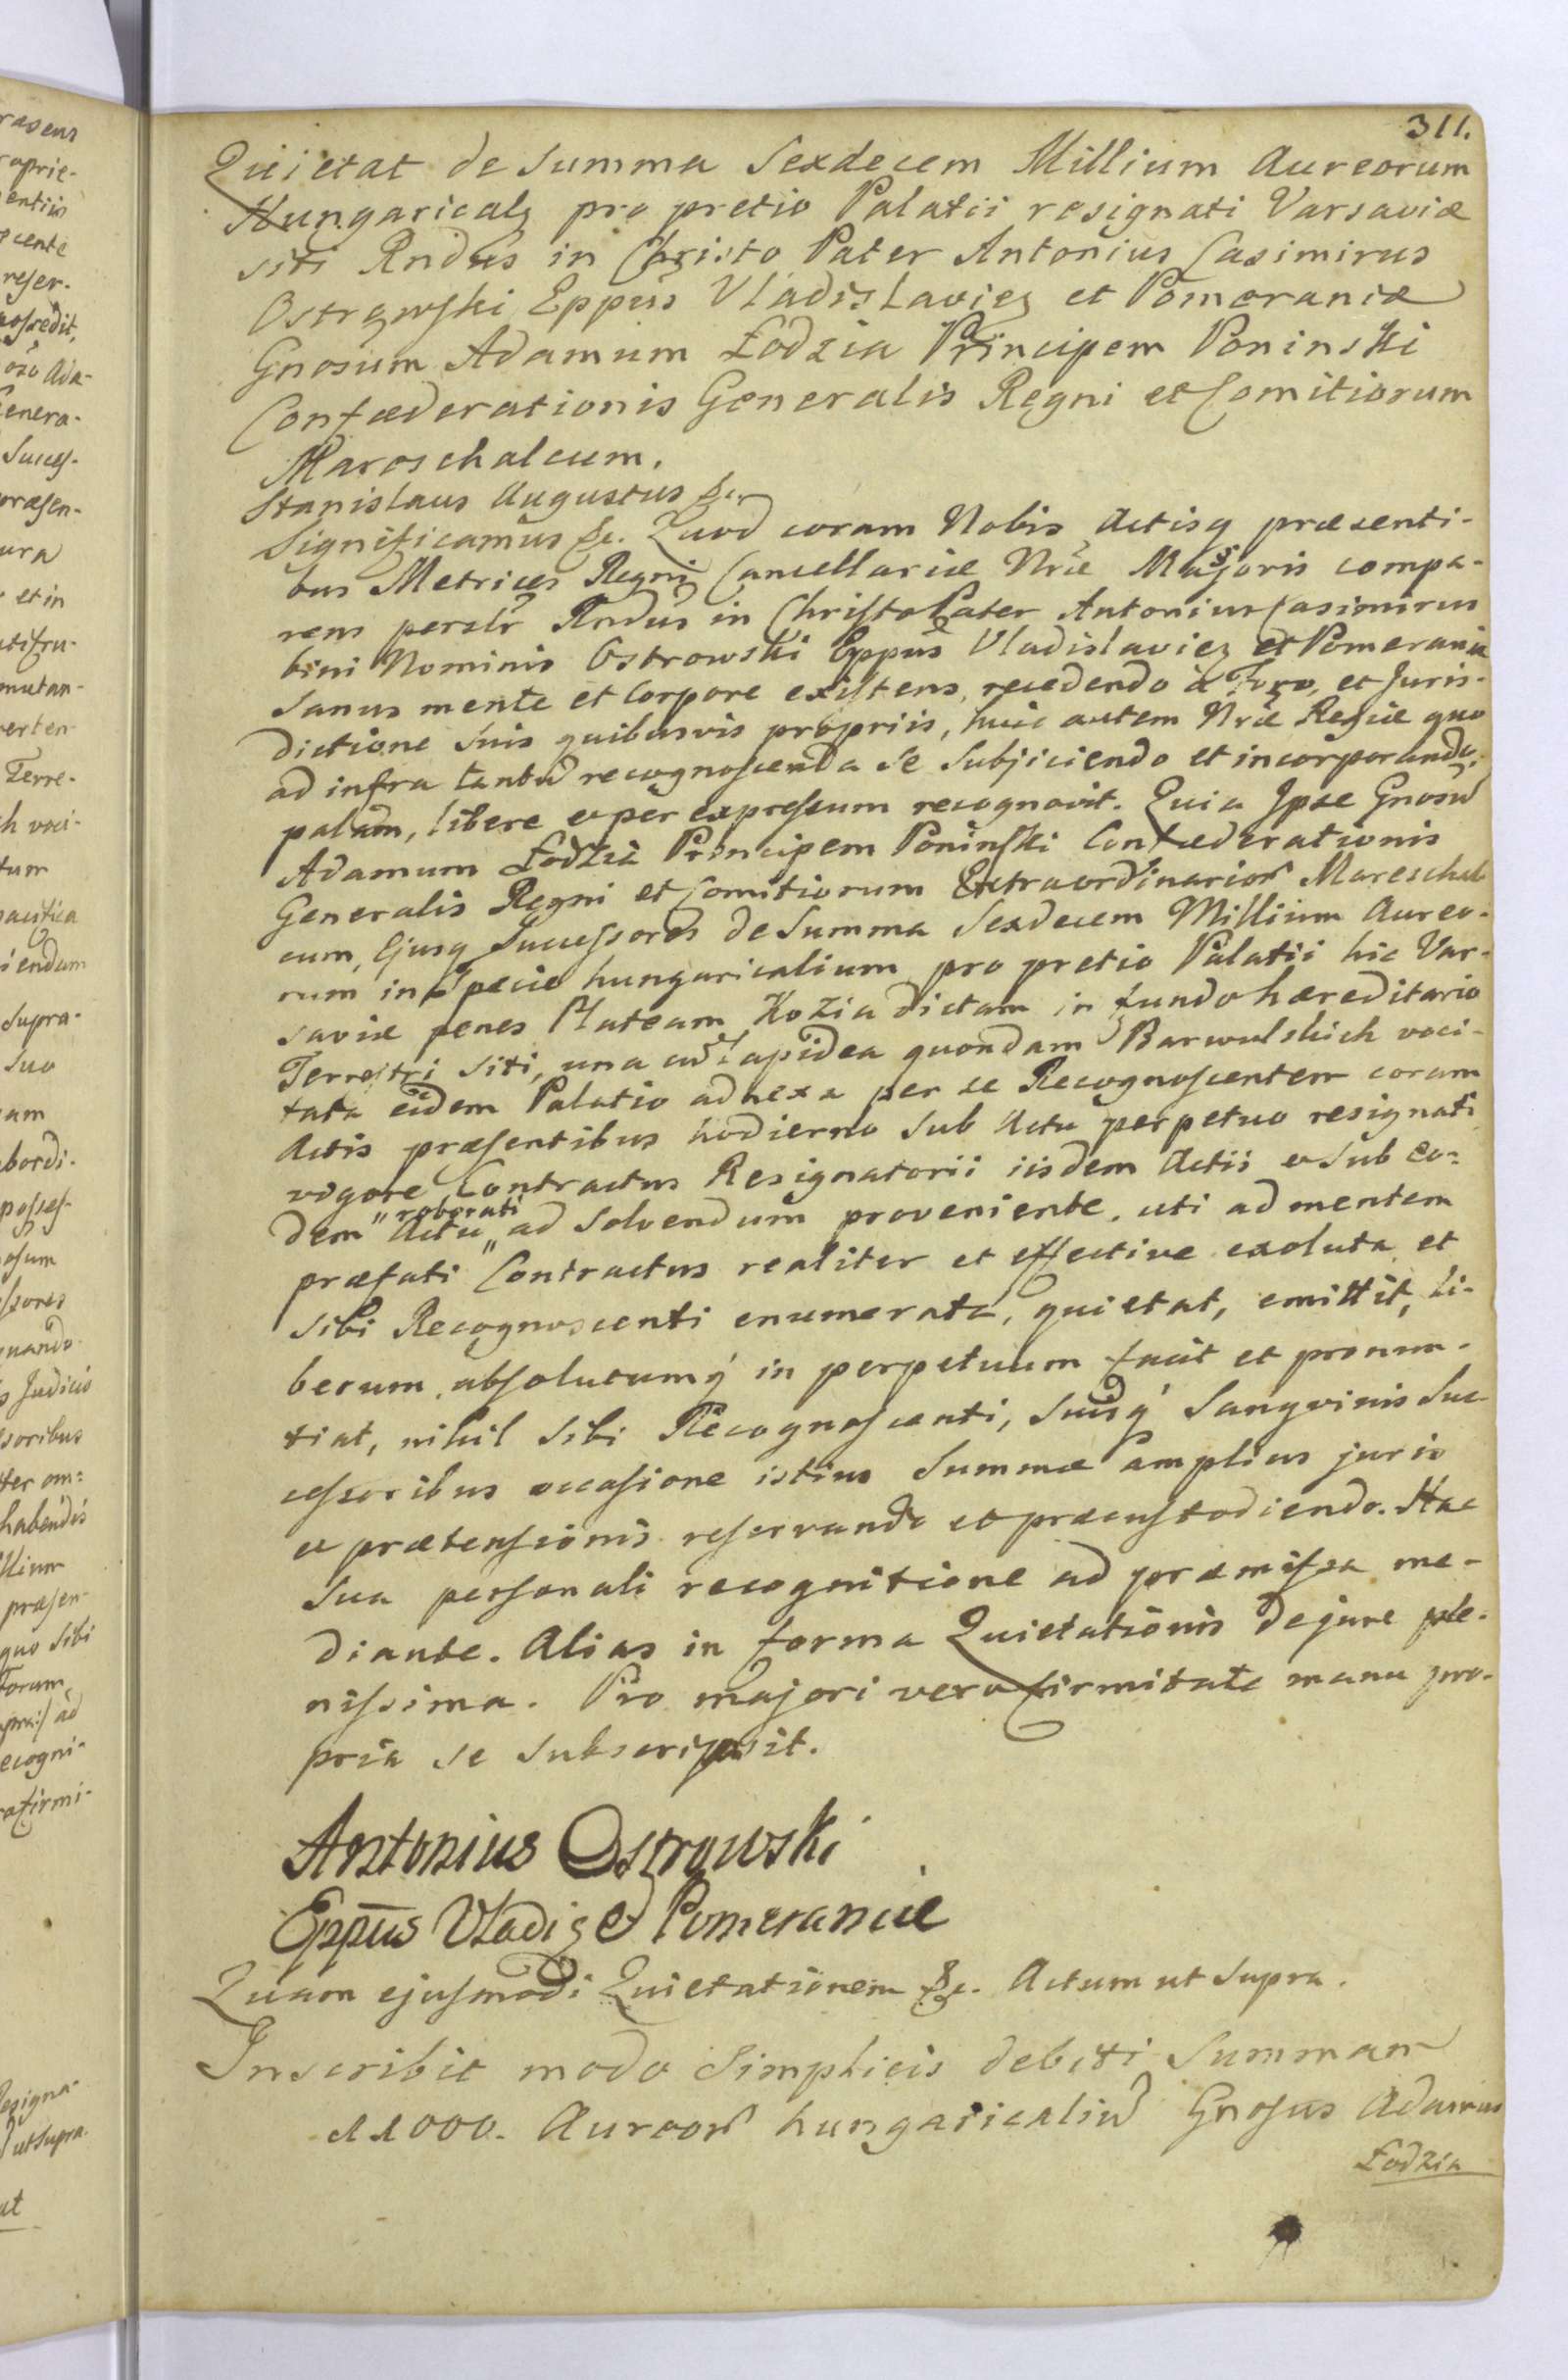 311.
Quietat de Summa Sexdecem Millium Aureorum
Hungaricalz pro pretio Palatii resignati Varsaviæ
siti Rndus in Christo Pater Antonius Casimirus
Ostrowski Eppus Vladislaviez et Pomeraniæ
Gnosum Adamum Łodzia Principem Poninski
Confæderationis Generalis Regni et Comitiorum
Mareschalcum.
Stanislaus Augustus &c.
Significamus &c. Quod coram Nobis Actisq præsenti-
bus Metrices Regni Cancellariæ Nræ Majoris compa-
rens persłr Rndus in Christo Pater Antonius Casimirus
bini Nominis Ostrowski Eppus Vladislaviez et Pomerania
Sanus mente et Corpore existens, recedendo à Foro, et Juris-
dictione Suis quibusvis propriis, huic autem Nræ Regiæ quo
ad infra tantu recognoscenda se Subjiciendo et incorporando,
palam, libere et per expressum recognovit. Quia Ipse Gnosu
Adamum Łodzia Principem Poninski Confæderationis
Generalis Regni et Comitiorum Extraordinarior Mareschal-
cum, Ejusq Successores de Summa Sexdecem Millium Aureo-
rum in Specie hungaricalium pro pretio Palatii hic Var-
saviæ penes Plateam Kozia dictam in fundo hæreditario
Terrestri siti, una cu Lapidea quondam Barwulskich voci-
tata eidem Palatio adnexa per se Recognoscentem coram
Actis præsentibus hodierno Sub Actu perpetuo resignati
vigore Contractus Resignatorii iisdem Actis et Sub eo-
dem " Actu " roborati ad Solvendum proveniente, uti ad mentem
præfati Contractus realiter et effective exoluta et
sibi Recognoscenti enumerata, quietat, emittit, li-
berum, absolutumq in perpetuum facit et pronun-
tiat, nihil Sibi Recognoscenti, Suisq Sangvinis Suc-
cessoribus occasione istius Summæ amplius juris
et prætensionis reservando et præcustodiendo. Hac
Sua personali recognitione ad præmissa me-
diante. Alias in forma Quietationis de jure ple-
nissima. Pro majori vero firmitate manu pro-
pria se Subscripsit.
Antonius Ostrowski
Eppus Vladiz et Pomeraniæ
Quam ejusmodi Quietationem &c. Actum ut Supra.
Inscribit modo Simplicis debiti Summam
11000. Aureor hungaricaliu Gnosus Adamus
Łodzia